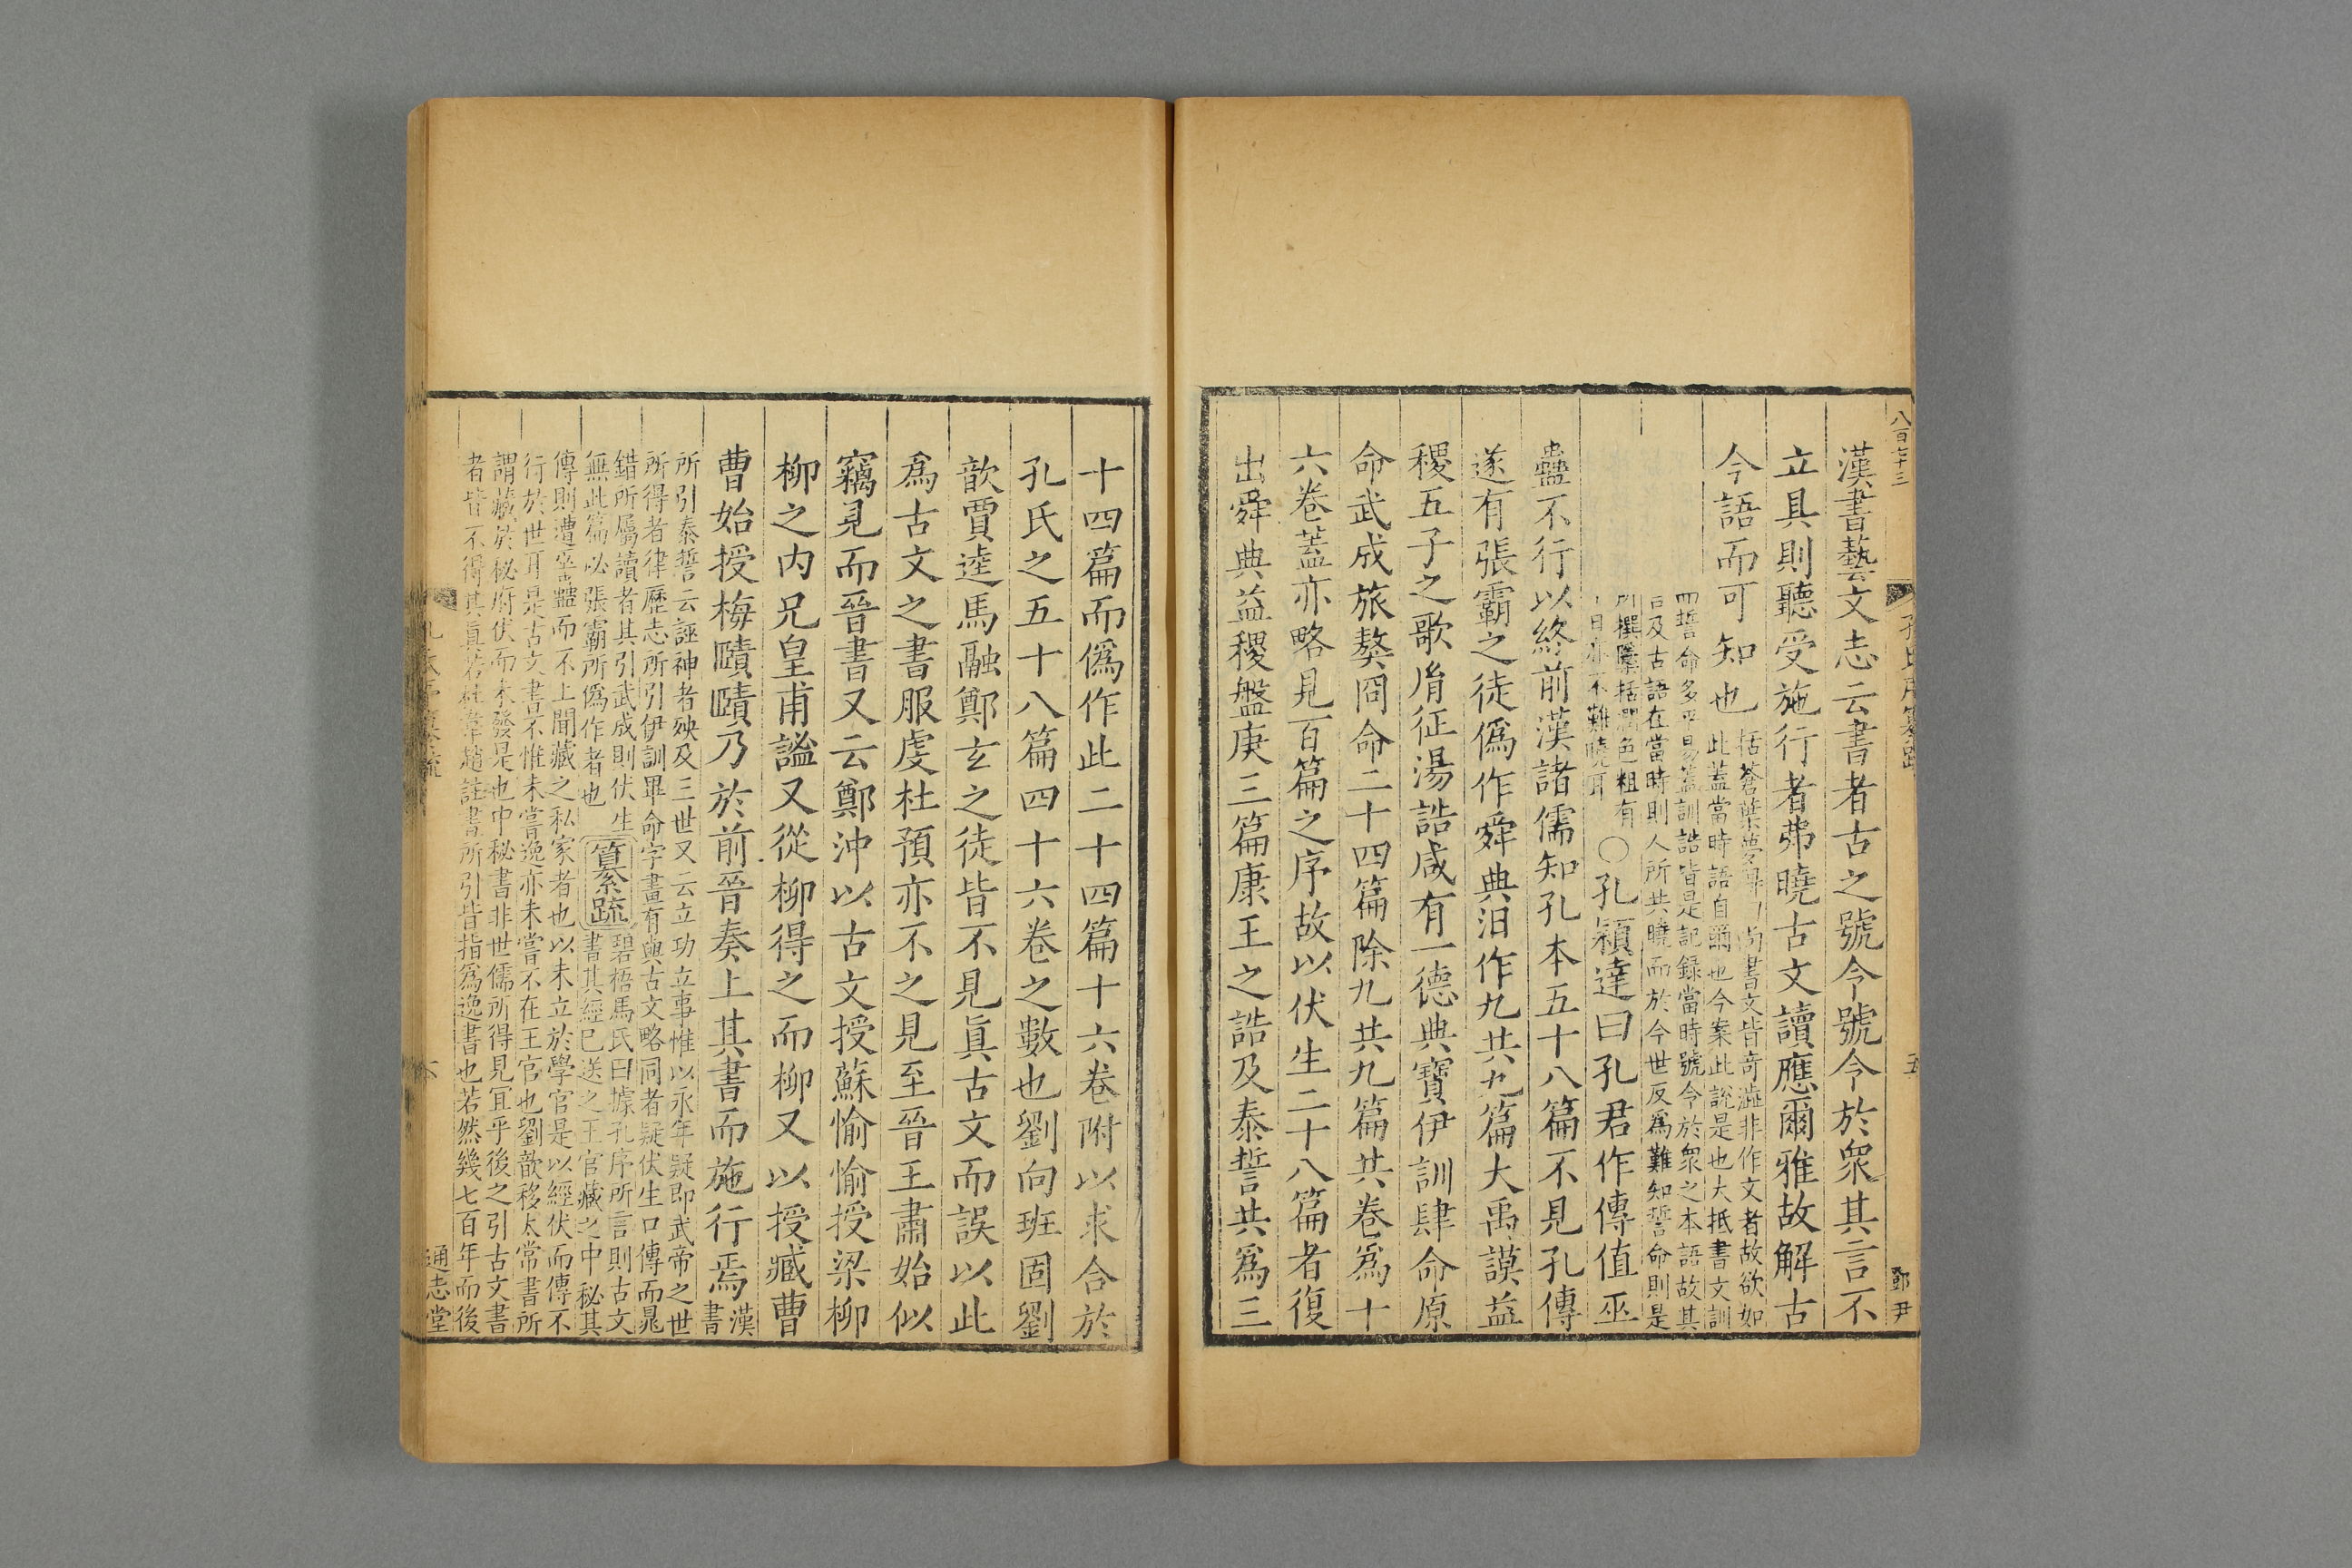 八百七十三
五
鄧尹
漢書藝文志云書者古之號令號令於衆其言不
立具則聽受施行者弗曉古文讀應爾雅故解古
今語而可知也
括蒼葉夢得曰尚書文皆奇澁非作文者故欲如
此蓋當時語自爾也今案此說是也大抵書文訓
誥多
誓命多平易蓋訓誥皆是記録當時號令於衆之本語故其
及古語在當時則人所共曉而於今世反爲難知誓命則是
撰檃括潤色粗有
亦不難曉耳
○孔穎達曰孔君作傳值巫
蠱不行以終前漢諸儒知孔本五十八篇不見孔傳
遂有張霸之徒僞作舜典汩作九共九篇大禹謨益
稷五子之歌胤征湯誥咸有一德典寶伊訓肆命原
命武成旅獒冏命二十四篇除九共九篇共卷爲十
六卷蓋亦略見百篇之序故以伏生二十八篇者復
出舜典益稷盤庚三篇康王之誥及泰誓共爲三
十四篇而僞作此二十四篇十六卷附以求合於
孔氏之五十八篇四十六卷之數也劉向班固劉
歆賈逵馬融鄭玄之徒皆不見眞古文而誤以此
爲古文之書服虔杜預亦不之見至晉王肅始似
竊見而晉書又云鄭沖以古文授蘇愉愉授梁柳
柳之内兄皇甫謐又從柳得之而柳又以授臧曹
曹始授梅賾賾乃於前晉奏上其書而施行焉
漢
書
所引泰誓云誣神者殃及三世又云立功立事惟以永年疑即武帝之世
所得者律歷志所引伊訓畢命字畫有與古文略同者疑伏生口傳而晁
錯所屬讀者其引武成則伏生
無此篇必張霸所僞作者也
纂疏
碧梧馬氏曰據孔序所言則古文
書其經已送之王官藏之中秘其
傳則遭巫蠱而不上聞藏之私家者也以未立於學官是以經伏而傳不
行於世耳是古文書不惟未嘗逸亦未嘗不在王官也劉歆移太常書所
謂藏於秘府伏而未發是也中秘書非世儒所得見宜乎後之引古文書
者皆不得其眞若杜韋趙註書所引皆指爲逸書也若然幾七百年而後
六
通志堂